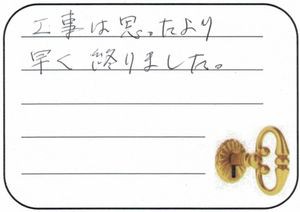 工事は思ったより
早く終りました。